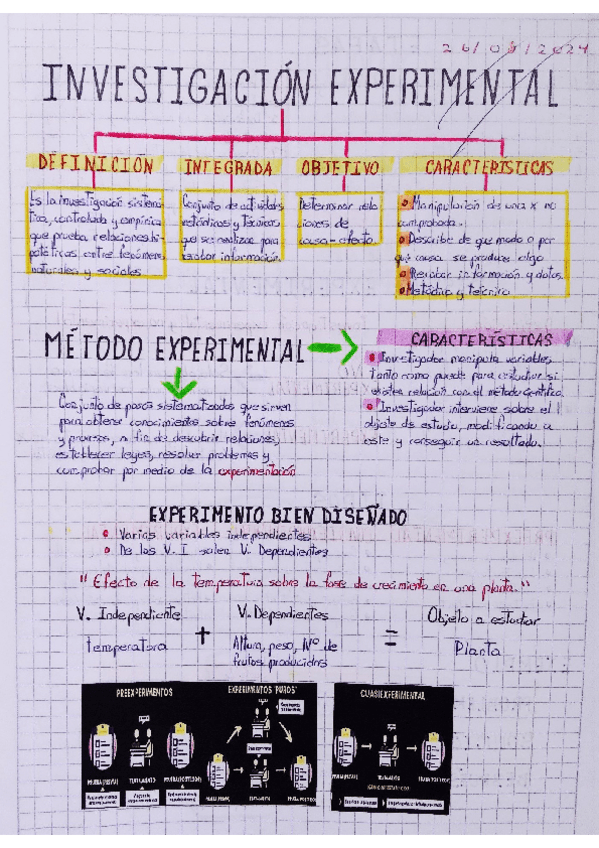 26/09/2024
INVESTIGACIÓN EXPERIMENTAL
DEFINICIÓN
Es la investigación sistemá
tica, controlada y empírica
que prueba relaciones hi-
potéticas entre fenómenos
naturales y sociales
INTEGRADA
Conjunto de actividades
metódicas y técnicas
que se realizan para
recabar información
OBJETIVO
Determinar rela
ciones de
causa-efecto.
CARACTERÍSTICAS
Manipulación de una x no
comprobada.
Describe de que modo o por
qué causa se produce algo
Recabar información y datos.
Metódica y técnica
MÉTODO EXPERIMENTAL
Conjunto de pasos sistematizados que sirven
para obtener conocimiento sobre fenómenos
y procesos, a fin de descubrir relaciones,
establecer leyes, resolver problemas y
comprobar por medio de la experimentación
CARACTERÍSTICAS
Investigador manipula variables
tanto como puede para estudiar si
existe relación con el método científico.
Investigador interviene sobre el
objeto de estudio, modificando a
este y conseguir un resultado.
EXPERIMENTO BIEN DISEÑADO
Varias variables independientes
De las V. I salen V. Dependientes
"Efecto de la temperatura sobre la fase de crecimiento en una planta."
V. Independiente V. Dependientes Objeto a estudiar
temperatura + Altura, peso, Nº de frutos producidos = Planta
PREEXPERIMENTOS
PRUEBA (PREVIA) TRATAMIENTO PRUEBA (POSTERIOR)
EXPERIMENTOS "PUROS"
PRUEBA (PREVIA) TRATAMIENTO
CUASIEXPERIMENTAL
PRUEBA (PREVIA) TRATAMIENTO